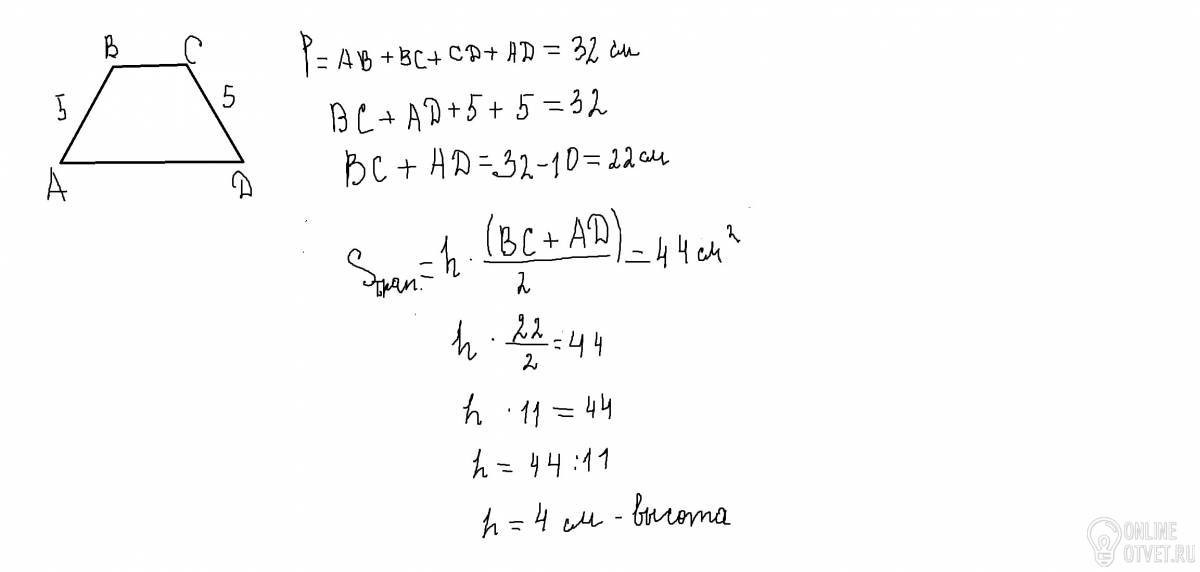 B C
5 5
A D
P = AB + BC + CD + AD = 32 см
BC + AD + 5 + 5 = 32
BC + AD = 32 - 10 = 22 см
Sтрап. = h · (BC + AD) / 2 = 44 см²
h · 22/2 = 44
h · 11 = 44
h = 44 : 11
h = 4 см - высота
ONLINE
OTVET.RU